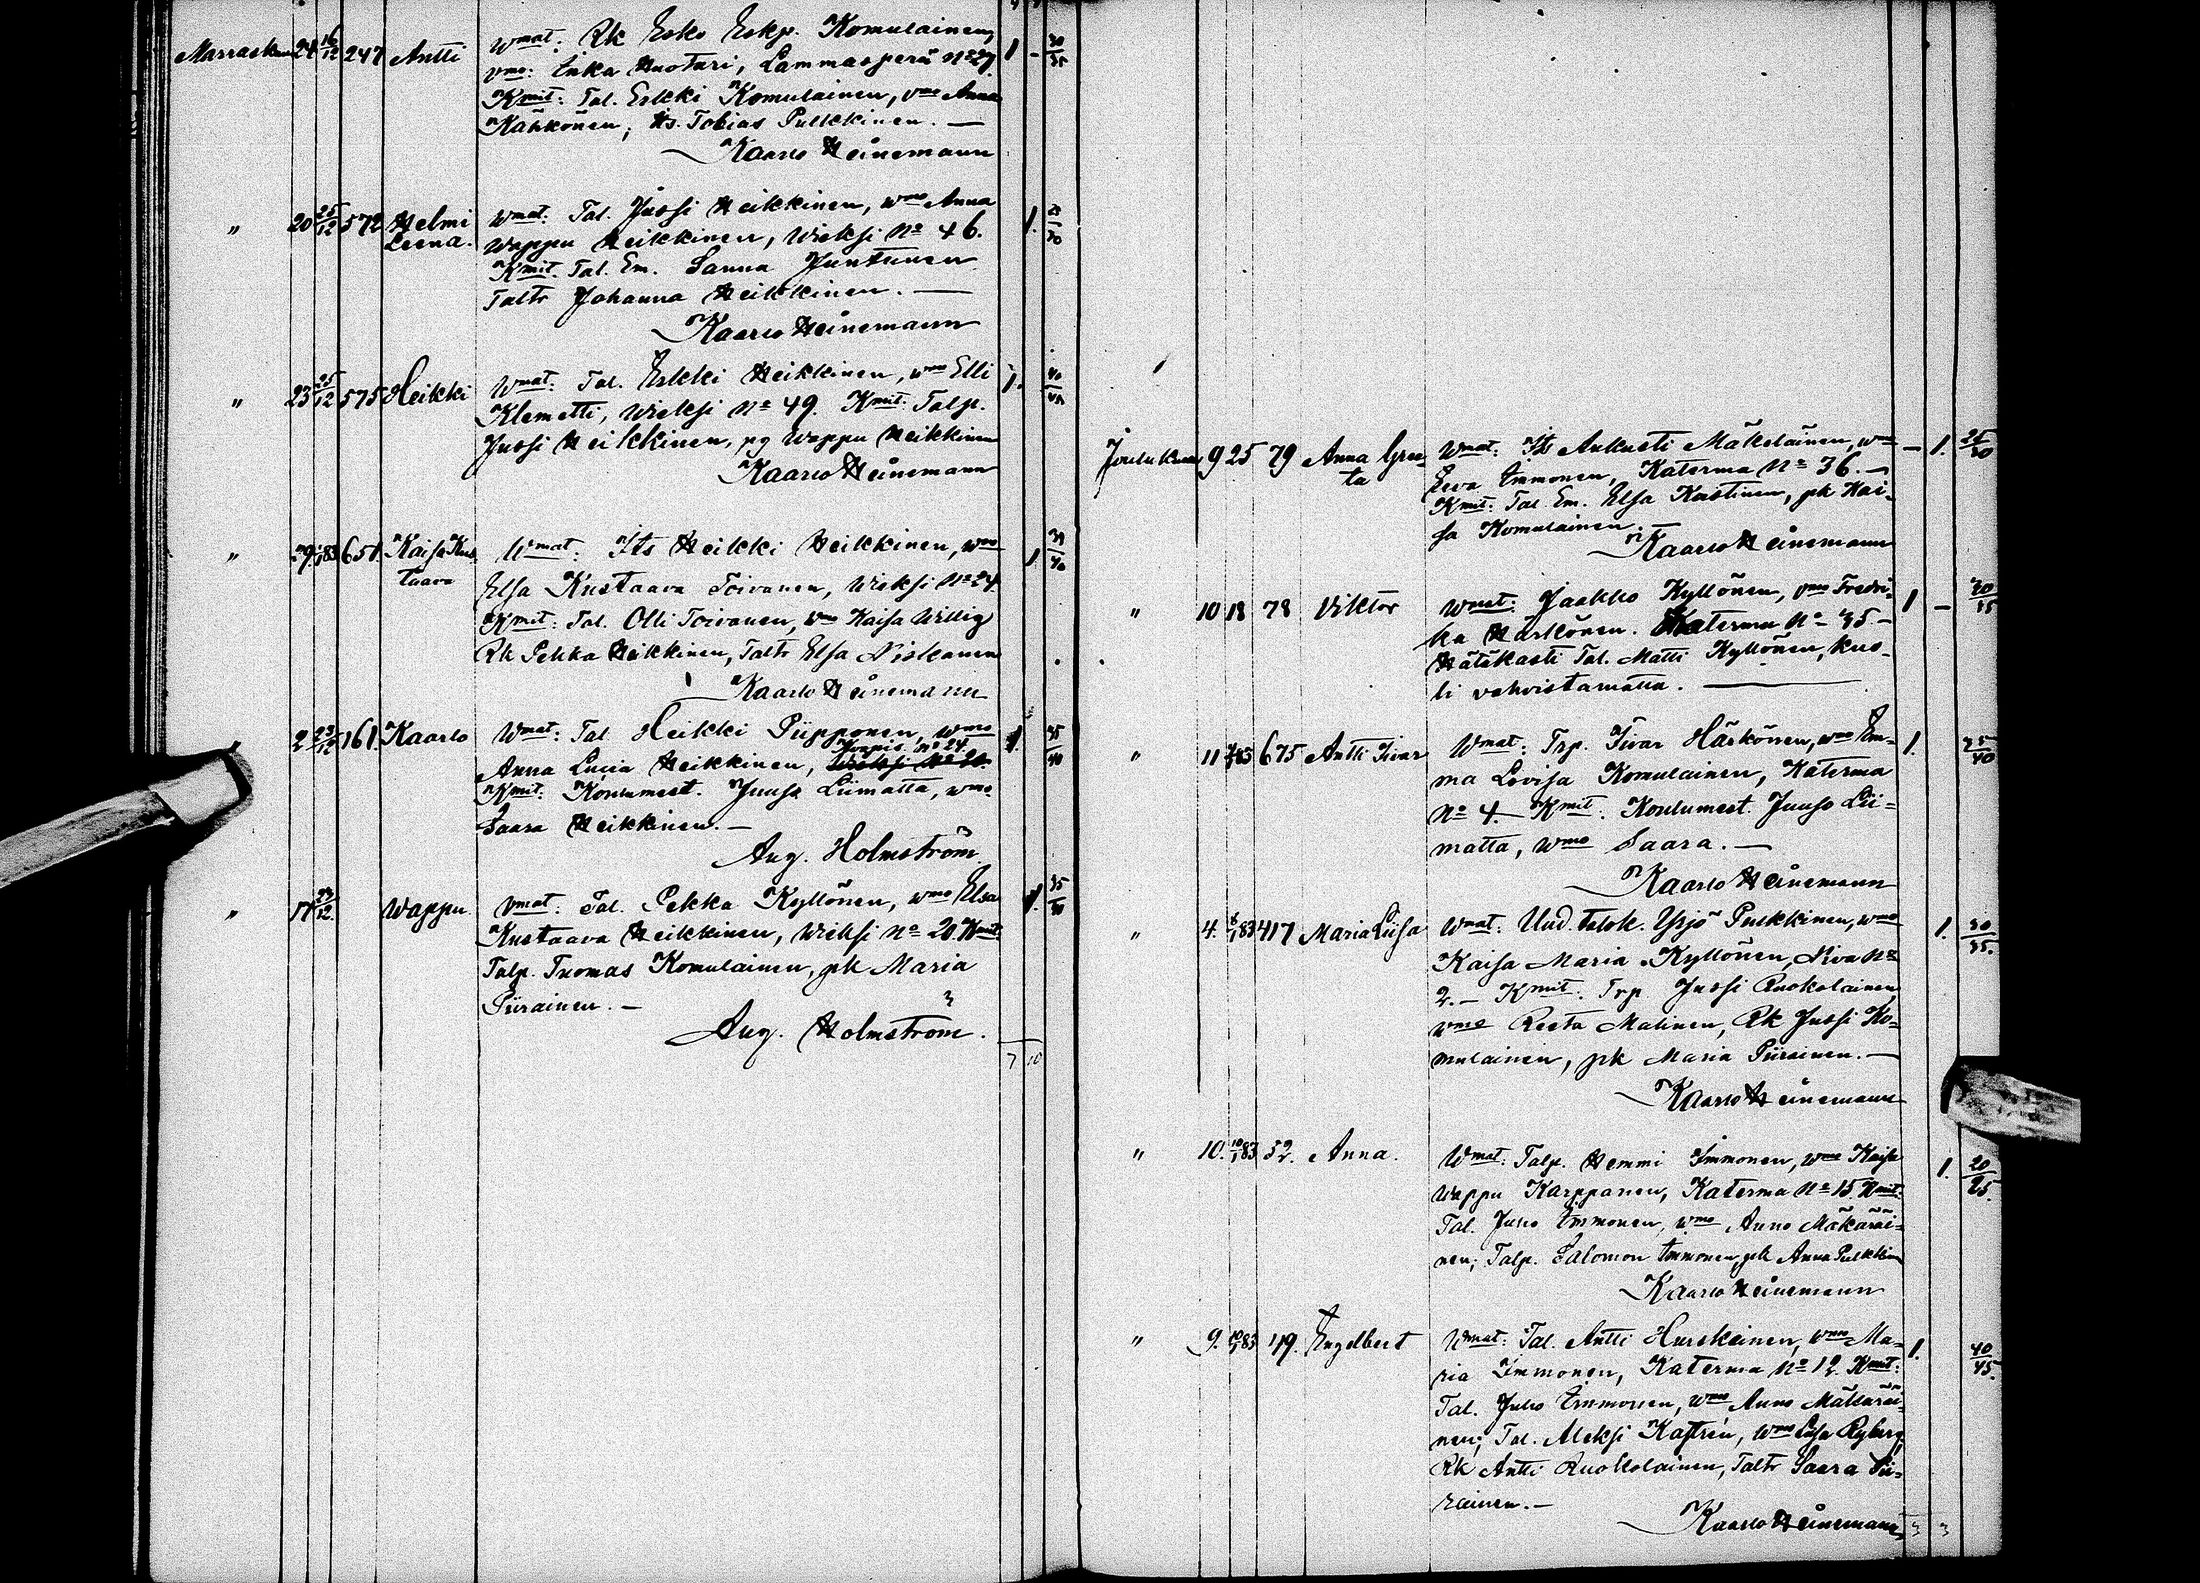 Marraskuu 24 16/12 247 Antti Wmat: Rk Esko Eskp. Komulainen, 1 - 30/35
vmo: Inka Huoturi, Lammasperä No 27.
Kmit: Tal. Erkki Komulainen, vmo Anna
Kähkönen, Its. Tobias Pulkkinen. —
Kaarlo Heinemann
" 20 25/12 572 Helmi Wmat: Tal. Jussi Heikkinen, wmo Anna 1.
Leena. Wappu Heikkinen, Wieksi No 46.
Kmit. Tal. Em. Sanna Juntunen
Taltr Johanna Heikkinen. —
Kaarlo Heinemann
" 23 25/12 575 Heikki Wmat: Tal. Erkki Heikkinen, wmo Elli 1.
Klemetti, Wieksi No 49. Kmit: Talp.
Jussi Heikkinen, pg Wappu Heikkinen
Kaarlo Heinemann
" 29 651 Kaisa Kus Wmat: Its Heikki Heikkinen, wmo 1.
taava
Elsa Kustaava Toivanen, Wieksi No 24.
Kmit: Tal. Olli Toivanen, vmo Kaisa Willig
Rk Pekka Heikkinen, Taltr Elsa Niskanen
Kaarlo Heinemann
2 23/12 161 Kaarlo Wmat: Tal Heikki Piipponen, wmo 1. 35/40
No 24.
Anna Lucia Heikkinen, Wieksi No 20.
Kmit: Koulumest. Juuso Liimatta, wmo
Saara Heikkinen. —
Aug. Holmström
" 17 23/12. Wappu Vmat: Tal. Pekka Kyllönen, wmo Elsa 1.
Kustaava Heikkinen, Wieksi No 20. Kmit:
Talp. Tuomas Komulainen, pk Maria
Piirainen. —
Aug. Holmström.
7 10
Joulukuu 9 25 79 Anna Gree- Wmat: Its Aukusti Mäkeläinen, wmo — 1. 25/30
ta Eeva Immonen, Katerma No 36. —
Kmit: Tal Em. Elsa Kastinen, pk Kai-
sa Komulainen. —
Kaarlo Heinemann
" 10 18 78 Viktor Wmat: Jaakko Kyllönen, vmo Fredri- 1 —
ka Härkönen. Katerma No 35 —
Hätäkasti Tal. Matti Kyllönen, kuo-
li vahvistamatta. —
" 11 675 Antti Iivar Wmat: Trp. Iivar Härkönen, wmo Em- 1. 35/40
ma Lovisa Komulainen, Katerma
No 4. — Kmit: Koulumest. Juuso Lii-
matta, wmo Saara. —
Kaarlo Heinemann
" 4. 417 Maria Liisa Wmat: Uud. talok. Yrjö Pulkkinen, wmo 1. 30/35.
Kaisa Maria Kyllönen, Niva No
2. — Kmit: Trp Jussi Ruokolainen
vmo Reeta Malinen, Rk Jussi Ko-
mulainen, pk Maria Piirainen. —
Kaarlo Heinemann
" 10. 10/1 83 52. Anna. Wmat: Talp. Hemmi Immonen, wmo Kaisa 1. 20/25.
Wappu Karppanen, Katerma No 15. Kmit:
Tal. Juho Immonen, wmo Anno Mäkäräi-
nen, Talp. Salomon Immonen, pk Anna Pulkkinen
Kaarlo Heinemann
" 9. 49. Engelbert Wmat: Tal. Antti Hurskainen, wmo Ma- 1. 40/45.
ria Immonen, Katerma No 12. Kmit:
Tal. Juho Immonen, wmo Anno Mäkäräi-
nen; Tal. Aleksi Kastrén, wmo Liisa Ryberg
Rk Antti Ruokolainen, Taltr Saara Pii-
rainen. —
Kaarlo Heinemann
3 3